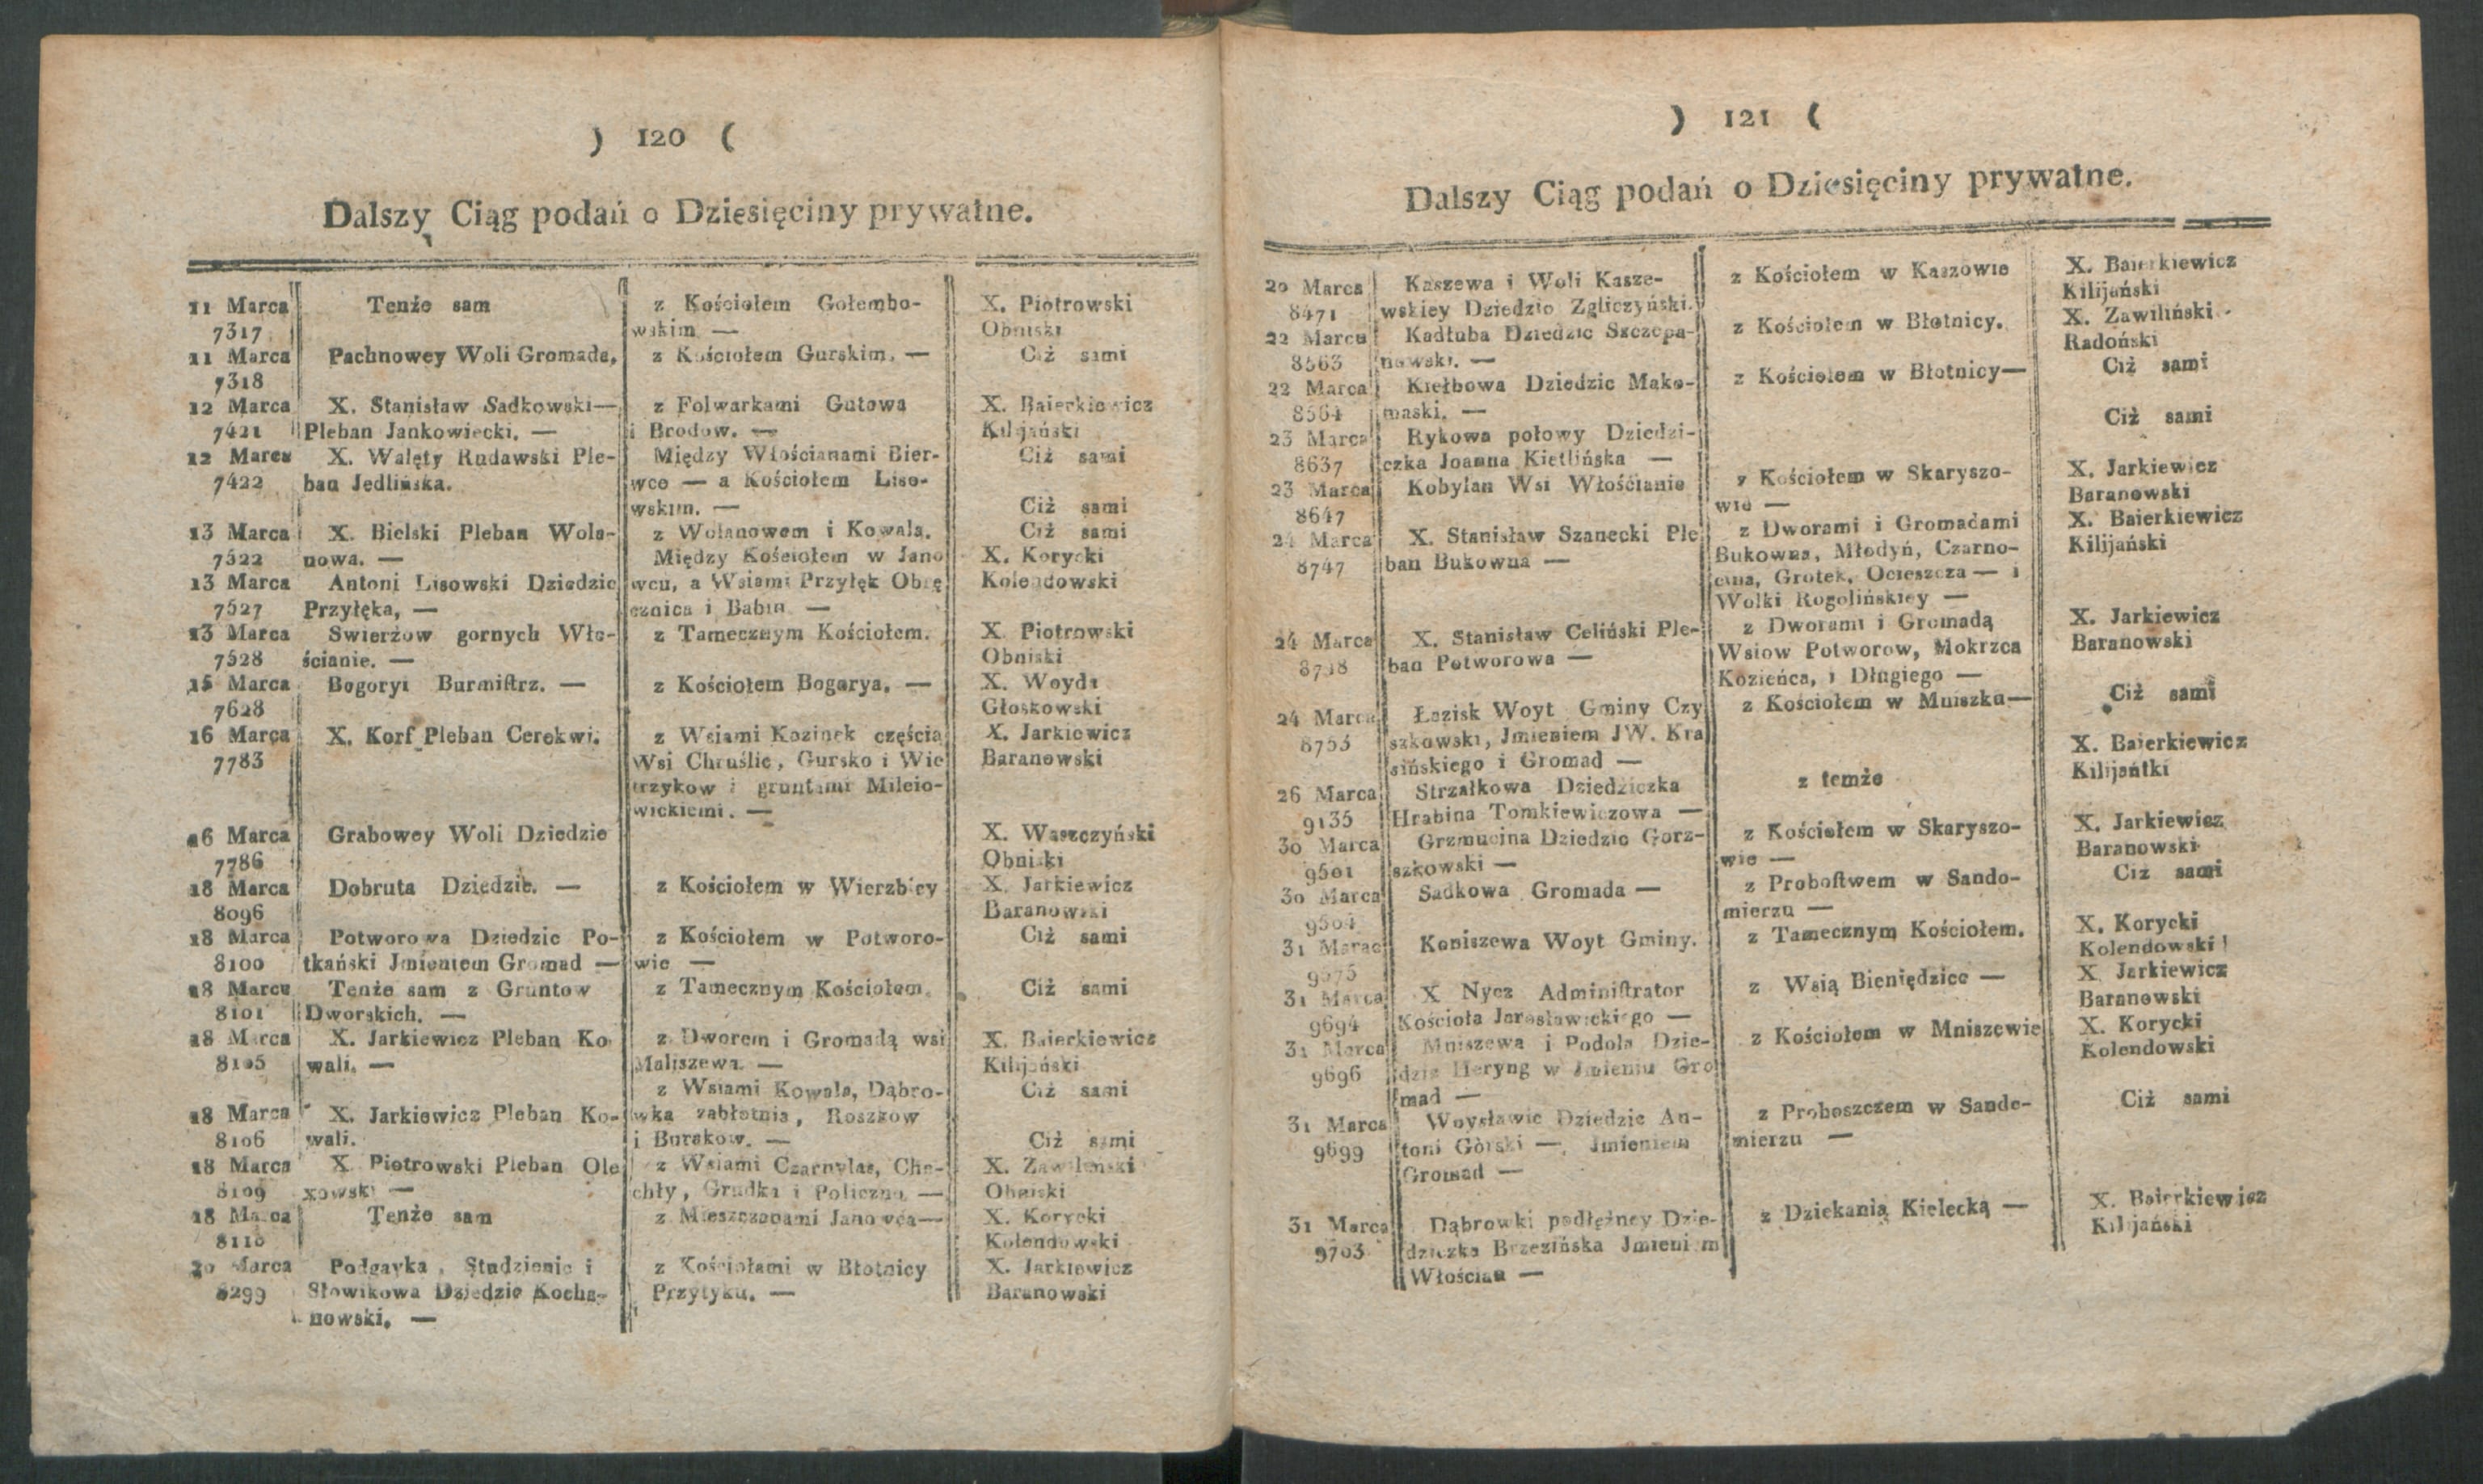 ) 120 (
Dalszy Ciąg podań o Dziesięciny prywatne.
11 Marca Tenże sam z Kościołem Gołembo- X. Piotrowski
7317 wskim — Obniski
11 Marca Pachnowey Woli Gromada, z Kościołem Gurskim. — Ciż sami
7318
12 Marca X. Stanisław Sadkowski— z Folwarkami Gutowa X. Baierkiewicz
7421 Pleban Jankowiecki. — i Brodow. — Kilijański
12 Marca X. Walęty Rudawski Ple- Między Włościanami Bier- Ciż sami
7422 ban Jedlińska. wce — a Kościołem Liso-
wskim. — Ciż sami
13 Marca X. Bielski Pleban Wola- z Wolanowem i Kowala. Ciż sami
7522 nowa. — Między Kościołem w Jano X. Korycki
13 Marca Antoni Lisowski Dziedzic wcu, a Wsiami Przyłęk Obrę Kolendowski
7527 Przyłęka, — cznica i Babin —
13 Marca Swierżow gornych Wło- z Tamecznym Kościołem. X. Piotrowski
7528 ścianie. — Obniski
15 Marca Bogoryi Burmistrz. — z Kościołem Bogorya. — X. Woyda
7628 Głoskowski
16 Marca X. Korf Pleban Cerekwi. z Wsiami Kozinek częścią X. Jarkiewicz
7783 Wsi Chruślic, Gursko i Wie Baranowski
trzykow i gruntami Milcio-
wickiemi. —
16 Marca Grabowey Woli Dziedzic X. Waszczyński
7786 Obniski
18 Marca Dobruta Dziedzic. — z Kościołem w Wierzbicy X. Jarkiewicz
8096 Baranowski
18 Marca Potworowa Dziedzic Po- z Kościołem w Potworo- Ciż sami
8100 tkański Jmieniem Gromad — wie —
18 Marca Tenże sam z Gruntow z Tamecznym Kościołem. Ciż sami
8101 Dworskich. —
18 Marca X. Jarkiewicz Pleban Ko z Dworem i Gromadą wsi X. Baierkiewicz
8105 wali. — Maliszewa. — Kilijański
z Wsiami Kowala, Dąbro- Ciż sami
18 Marca X. Jarkiewicz Pleban Ko- wka zabłotnia, Roszkow
8106 wali. i Burakow. — Ciż sami
18 Marca X. Piotrowski Pleban Ole z Wsiami Czarnylas, Cho- X. Zawiliński
8109 xowski — chły, Grudka i Policzna. — Obniski
18 Marca Tenże sam z Mieszczanami Janowca— X. Korycki
8110 Kolendowski
20 Marca Podgayka, Studzienic i z Kościołami w Błotnicy X. Jarkiewicz
8299 Słowikowa Dziedzic Kocha- Przytyku. — Baranowski
nowski. —
) 121 (
Dalszy Ciąg podań o Dziesięciny prywatne.
20 Marca Kaszewa i Woli Kasze- z Kościołem w Kaszowie X. Baierkiewicz
8471 wskiey Dziedzic Zgliczyński. Kilijański
22 Marca Kadłuba Dziedzic Szczepa- z Kościołem w Błotnicy. X. Zawiliński
8563 nowski. — Radoński
22 Marca Kiełbowa Dziedzic Mąko- z Kościołem w Błotnicy— Ciż sami
8564 maski. —
23 Marca Rykowa połowy Dziedzi- Ciż sami
8637 czka Joanna Kietlińska —
23 Marca Kobylan Wsi Włościanie z Kościołem w Skaryszo- X. Jarkiewicz
8647 wie — Baranowski
24 Marca X. Stanisław Szanecki Ple z Dworami i Gromadami X. Baierkiewicz
8747 ban Bukowna — Bukowna, Młodyń, Czarno- Kilijański
cina, Grotek, Ocieszcza — i
Wolki Rogolińskiey —
24 Marca X. Stanisław Celiński Ple- z Dworami i Gromadą X. Jarkiewicz
8748 ban Potworowa — Wsiow Potworow, Mokrzca Baranowski
Kozieńca, i Długiego —
24 Marca Łazisk Woyt Gminy Czy z Kościołem w Mniszku— Ciż sami
8753 szkowski, Jmieniem JW. Kra
sińskiego i Gromad — X. Baierkiewicz
26 Marca Strzałkowa Dziedziczka z temże Kilijańtki
9135 Hrabina Tomkiewiczowa —
30 Marca Grzmucina Dziedzic Gorz- z Kościołem w Skaryszo- X. Jarkiewicz
9501 szkowski — wie — Baranowski
30 Marca Sadkowa Gromada — z Probostwem w Sando- Ciż sami
9504 mierzu —
31 Marac Koniszewa Woyt Gminy. z Tamecznym Kościołem. X. Korycki
Kolendowski
31 Marca X Nycz Administrator z Wsią Bieniędzice — X Jarkiewicz
9694 Kościoła Jarosławickiego — Baranowski
31 Marca Mniszewa i Podola Dzie- z Kościołem w Mniszewie X. Korycki
9696 dzic Heryng w Jmieniu Gro Kolendowski
mad —
31 Marca Woysławic Dziedzic An- z Proboszczem w Sando- Ciż sami
9699 toni Górski — Jmieniem mierzu —
Gromad —
31 Marca Dąbrowki podłężney Dzie- z Dziekanią Kielecką — X. Baierkiewicz
9703 dziczka Brzezińska Jmieniem Kilijański
Włościan —